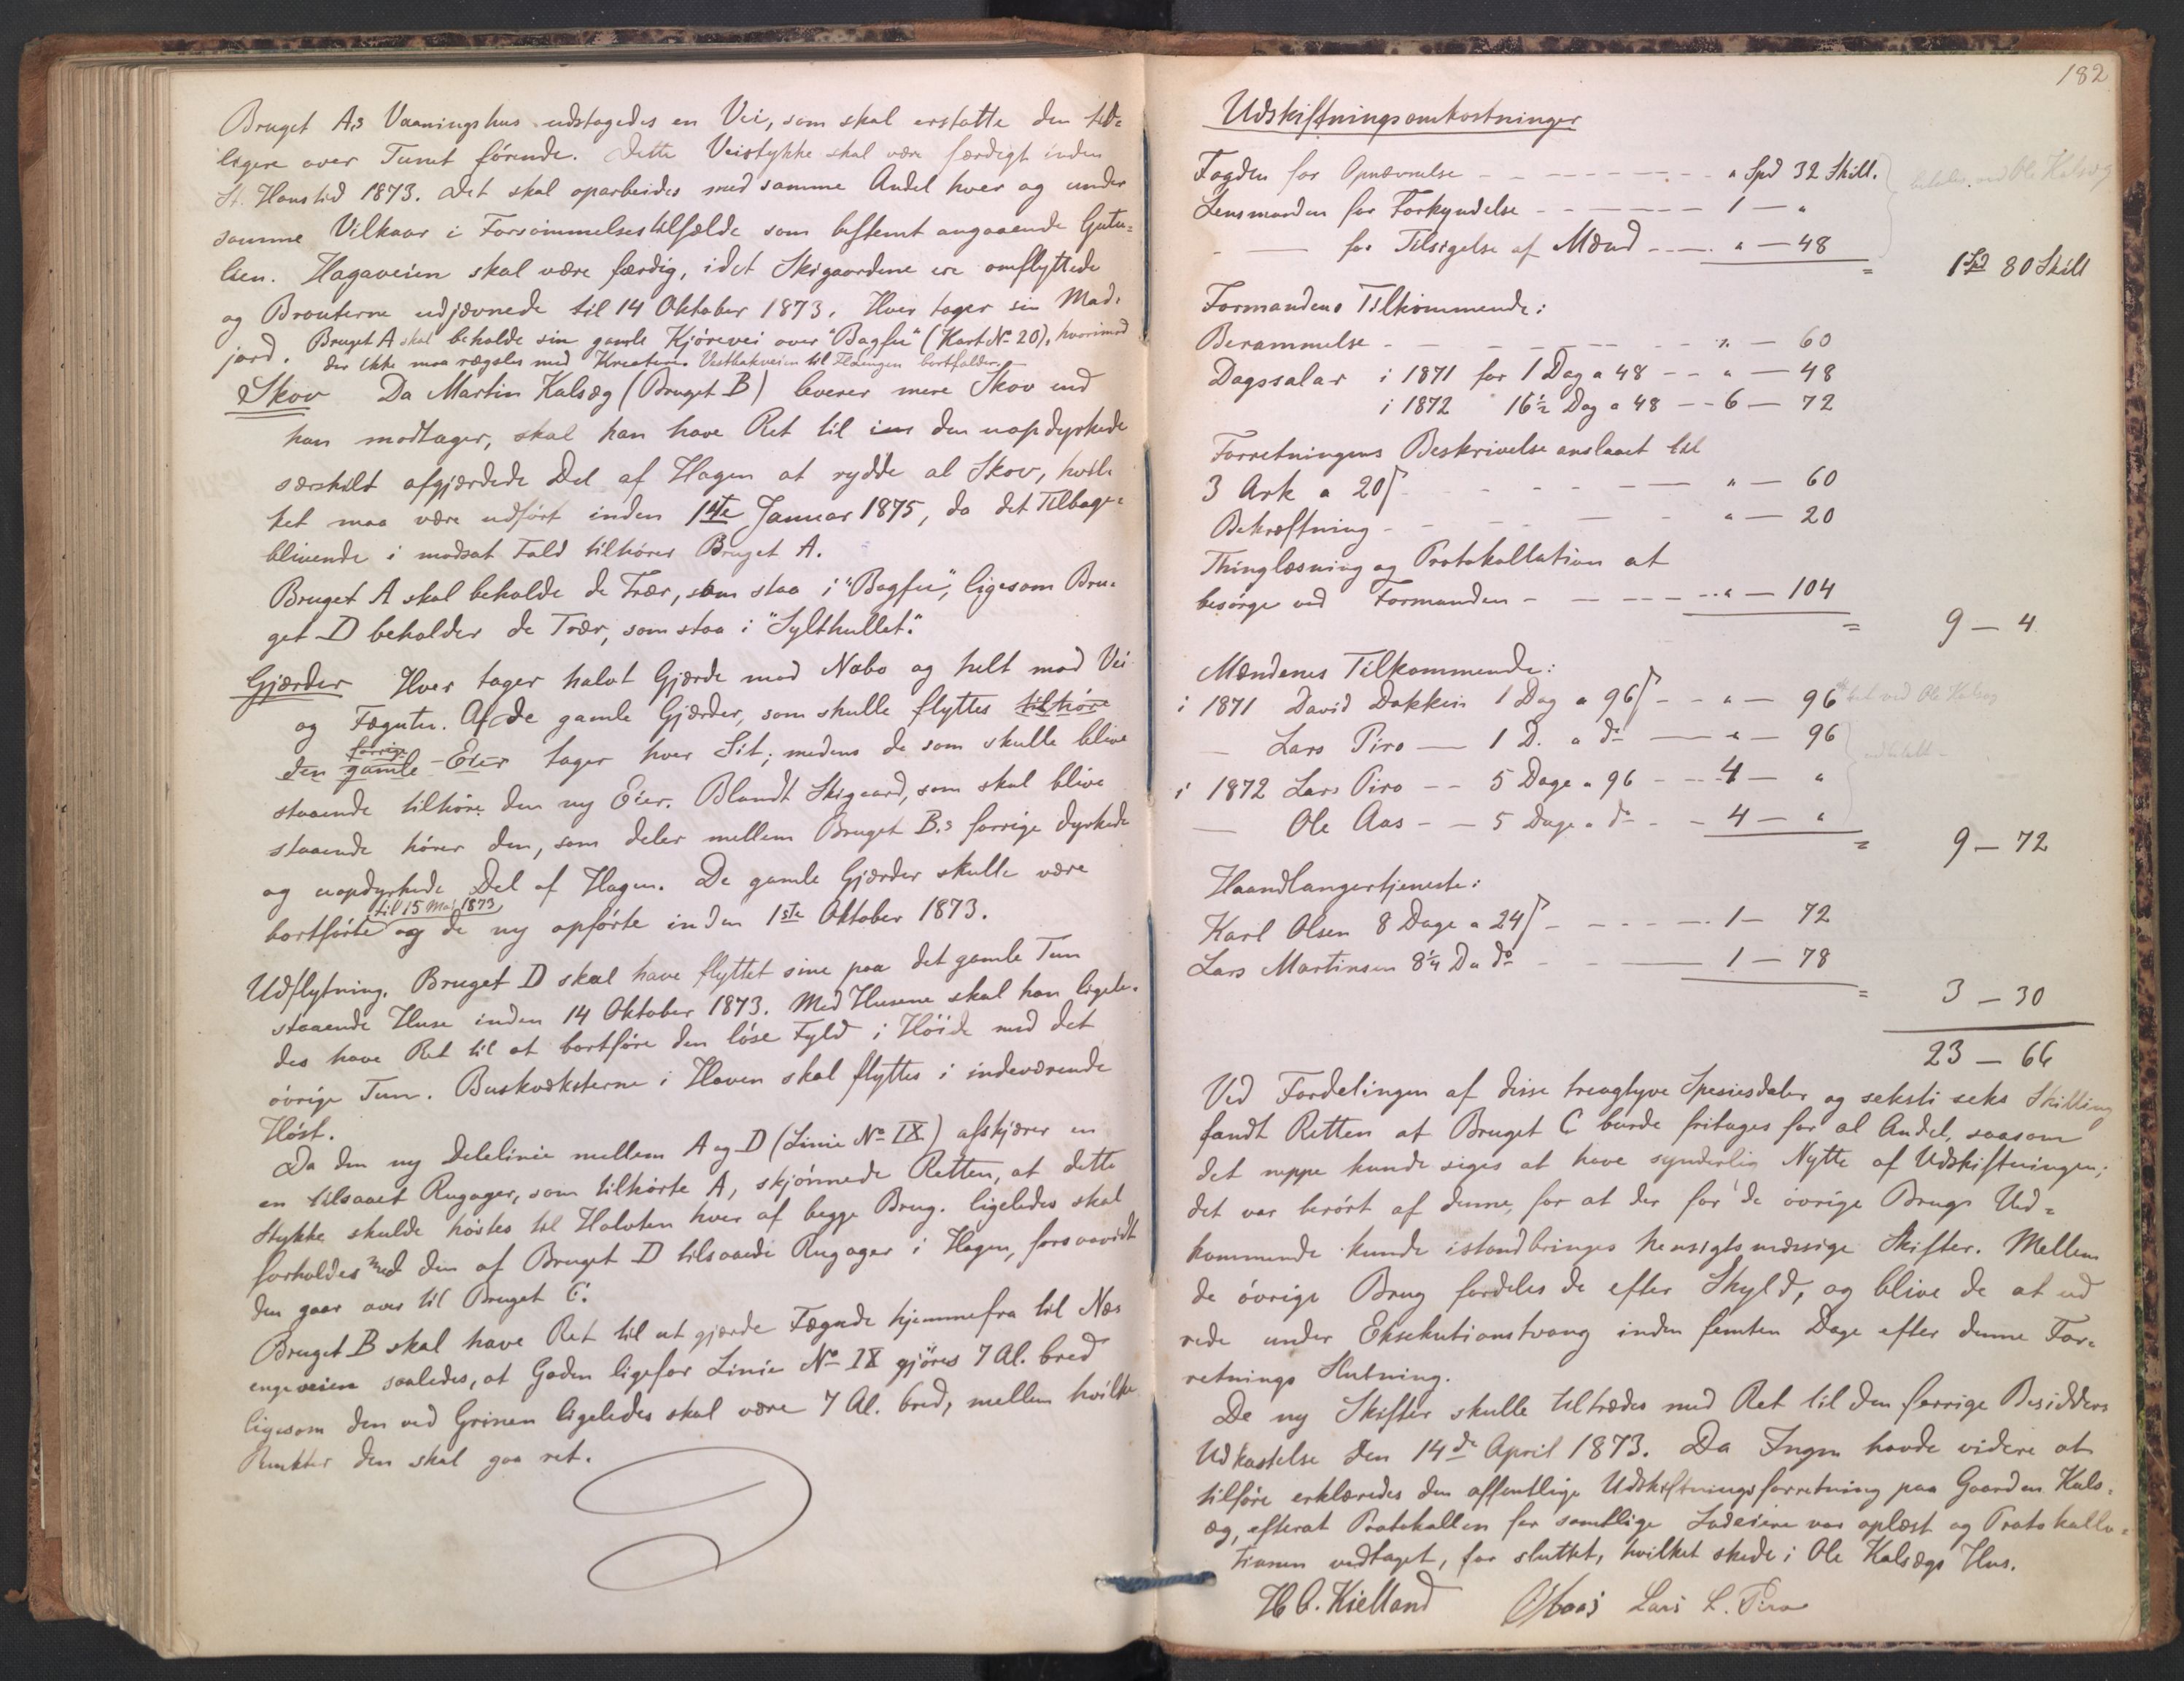 Bruget A,s Vaaningshus udstagedes en Vei, som skal erstatte den tid=
ligere over Tunet förende. Dette Veistykke skal være færdigt inden
St. Hanstid 1873. Det skal oparbeides med samme Andel hver og under
samme Vilkaar i Forsømmelsestilfælde som bestemt angaaende Gutu=
lien. Hagaveien skal være færdig, idet Skigaardene ere omflyttede
og Brouterne udjævnede til 14 Oktober 1873. Hver tager sin Mad=
jord. Bruget A skal beholde sin gamle Kjörevei over "Bagfu" (Kart No 20), hvorimod
der ikke maa rægsles med Kreaturer. Vestbakveien til bortfalder.
Skov Da Martin Kalsæg (Bruget B) leverer mere Skov end
han modtager, skal han have Ret til den uopdyrkede
særskilt afgjærdede Del af Hagen at rydde al Skov, hvil=
ket maa være udfört inden 1ste Januar 1875, da det Tilbage=
blivende i modsat Fald tilhörer Bruget A.
Bruget A skal beholde de Trær, som staa i "Bagfu", ligesom Bru=
get D beholder de Trær, som staa i "Sylthullet".
Gjærder Hver tager halvt Gjærde mod Nabo og helt mod Vei
og Fægutu. Af de gamle Gjærder, som skulle flyttes tilhöre
den forrige gamle Eier tager hver Sit; medens de som skulle blive
staaende tilhöre den ny Eier. Blandt Skigaard, som skal blive
staaende hörer den, som deler mellem Bruget B.s forrige dyrkede
og uopdyrkede Del af Hagen. De gamle Gjærder skulle være
bortförte til 15 Mai 1873 og de ny opförte inden 1ste Oktober 1873.
Udflytning. Bruget D skal have flyttet sine paa det gamle Tun
staaende Huse inden 14 Oktober 1873. Med Husene skal han ligele=
des have Ret til at bortföre den löse Fyld i Höide med det
övrige Tun. Buskvæksterne i Haven skal flyttes i indeværende
Höst.
Da den ny Delelinie mellem A og D (Linie No IX) afskjærer en
en tilsaaet Rugager, som tilhörte A, skjönnede Retten, at dette
Stykke skulde höstes til Halvten hver af begge Brug. ligeledes skal
forholdes med den af Bruget D tilsaaede Rugager i Hagen, forsaavidt
den gaar over til Bruget C.
Bruget B skal have Ret til at gjærde Fægade hjemmefra til Næs
engeveien saaledes, at Gaden ligefor Linie No IX gjöres 7 Al. bred
ligesom den ved Grinen ligeledes skal være 7 Al. bred, mellem hvilke
Punkter den skal gaa ret.
182
Udskiftningsomkostninger
Fogden for Opnævnelse - - - - " Spd 32 Skill.
Lensmanden for Forkyndelse - - - - 1 — "
- — for Tilsigelse af Mænd - - " — 48
betalt ved Ole Kalsæg
= 1 Spd 80 Skill
Formandens Tilkommende:
Berammelse - - - - " — 60
Dagssalar i 1871 for 1 Dag a 48 - - " — 48
i 1872 16½ Dag a 48 - - 6 — 72
Forretningens Beskrivelse anslaaet til
3 Ark a 20 ß - - - - " — 60
Bekræftning - - - - " — 20
Thinglæsning og Protokollation at
besörge ved Formanden - - - - " — 104
= 9 — 4
Mændenes Tilkommende:
i 1871 David Dokken 1 Dag a 96 ß - - " — 96 bet. ved Ole Kalsæg
— Lars Piro — 1 D. a do — " — 96
i 1872 Lars Piro - - 5 Dage a 96 - - 4 — "
— Ole Aas - - 5 Dage a do - - 4 — "
udbetalt
= 9 — 72
Haandlangertjeneste:
Karl Olsen 8 Dage a 24 ß - - - - 1 — 72
Lars Martinsen 8¼ D a do - - — 1 — 78
= 3 — 30
23 — 66
Ved Fordelingen af disse treogtyve Spesiesdaler og seksti seks Skilling
fandt Retten at Bruget C burde fritages for al Andel, saasom
det neppe kunde siges at have synderlig Nytte af Udskiftningen;
det var berört af denne, for at der for de övrige Brugs Ved=
kommende kunde istandbringes hensigtsmæssige Skifter. Mellem
de övrige Brug fordeles de efter Skyld, og blive de at ud
rede under Eksekutionstvang inden femten Dage efter denne For=
retnings Slutning.
De ny Skifter skulle tiltrædes med Ret til den forrige Besidders
Udkastelse den 14de April 1873. Da Ingen havde videre at
tilföre erklæredes den offentlige Udskiftningsforretning paa Gaarden Kals=
æg, efterat Protokollen for samtlige Lodeiere var oplæst og Protokolla=
tionen vedtaget, for sluttet, hvilket skede i Ole Kalsægs Hus.
H C. Kielland O Aas Lars L. Piro